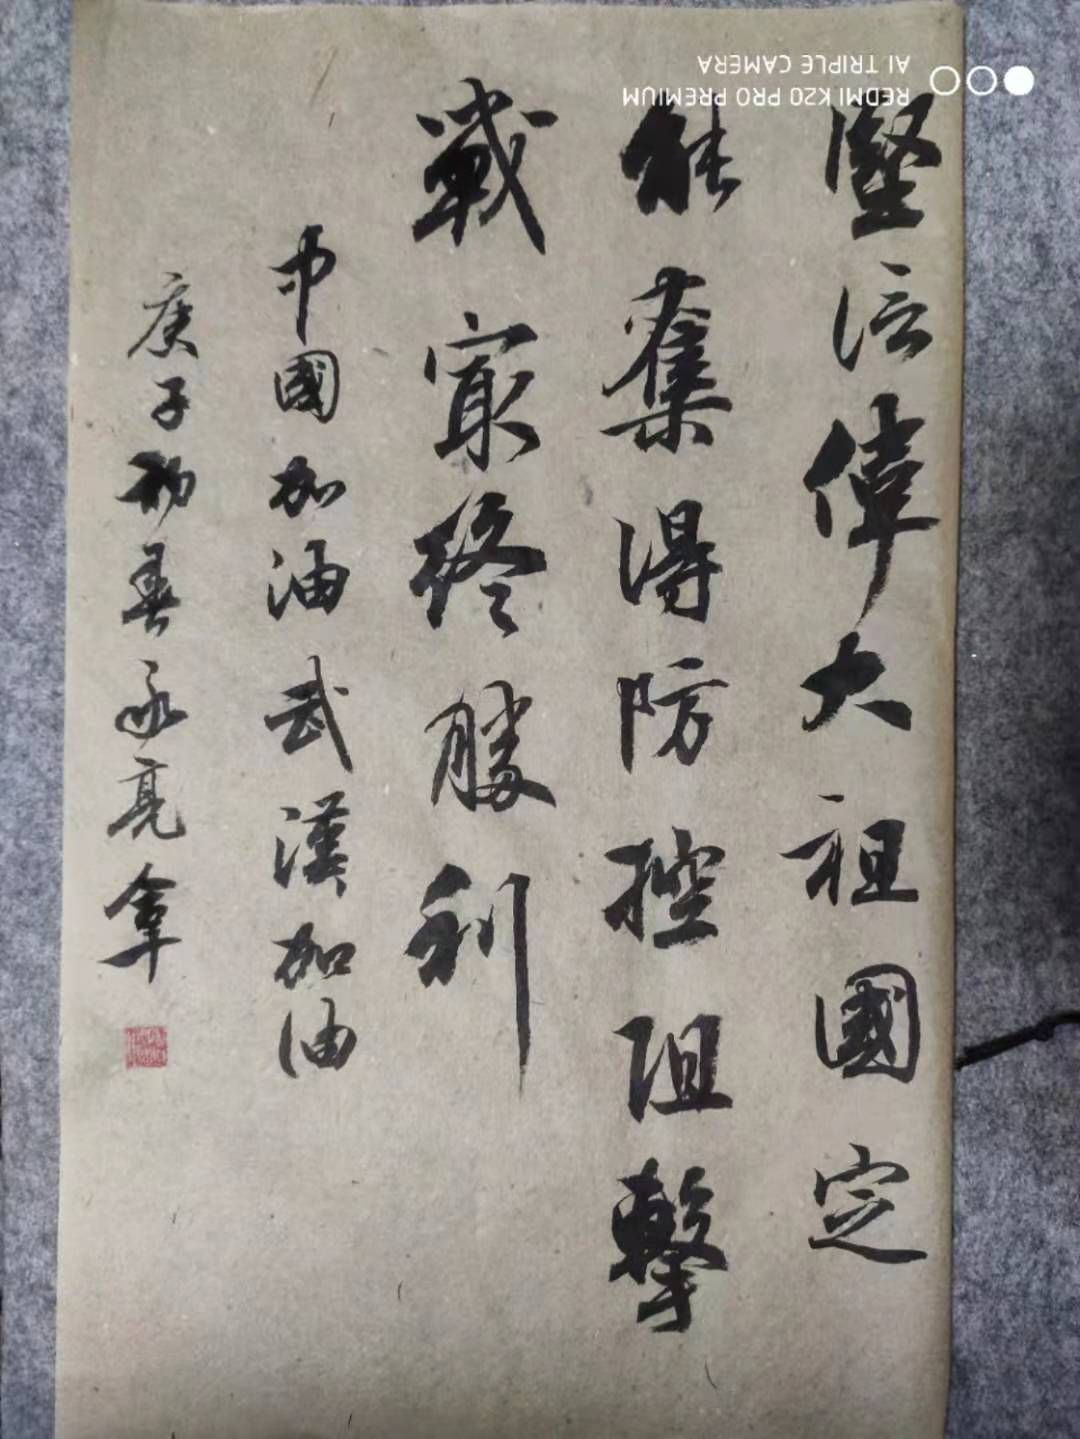 堅信偉大祖國定
能奪得防控阻擊
戰最終勝利
中國加油武漢加油
庚子初春永亮拿
REDMI K20 PRO PREMIUM
AI TRIPLE CAMERA